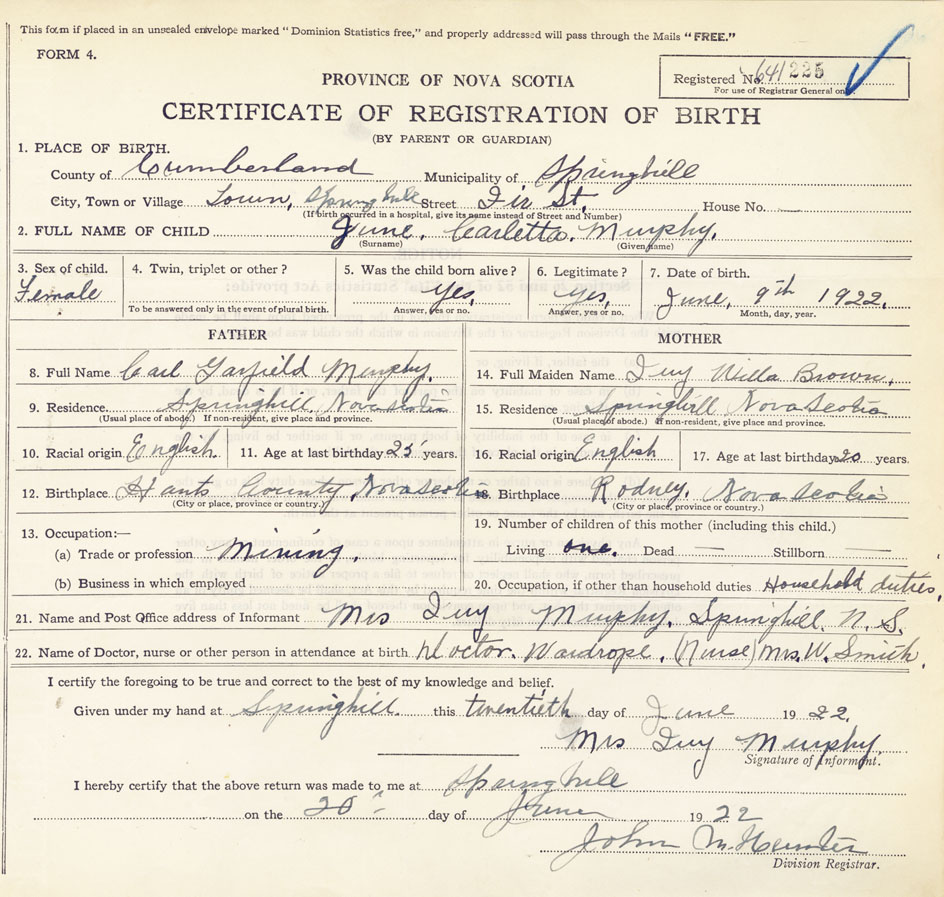 This form if placed in an unsealed envelope marked "Dominion Statistics free," and properly addressed will pass through the Mails "FREE."
FORM 4.
PROVINCE OF NOVA SCOTIA
Registered No. 641225
For use of Registrar General only.
CERTIFICATE OF REGISTRATION OF BIRTH
(BY PARENT OR GUARDIAN)
1. PLACE OF BIRTH.
County of Cumberland Municipality of Springhill
City, Town or Village Town, Springhill Street Fir St. House No.
(If birth occurred in a hospital, give its name instead of Street and Number)
2. FULL NAME OF CHILD June, Carletta. Murphy.
(Surname) (Given name)
3. Sex of child. 4. Twin, triplet or other? 5. Was the child born alive? 6. Legitimate? 7. Date of birth.
Female yes, yes, June, 9th 1922.
To be answered only in the event of plural birth. Answer, yes or no. Answer, yes or no. Month, day, year.
FATHER MOTHER
8. Full Name Carl Garfield Murphy. 14. Full Maiden Name Ivy Willa Brown.
9. Residence. Springhill, Nova Scotia 15. Residence Springhill Nova Scotia
(Usual place of abode.) If non-resident, give place and province. (Usual place of abode.) If non-resident, give place and province.
10. Racial origin English. 11. Age at last birthday 25 years. 16. Racial origin English 17. Age at last birthday 20 years.
12. Birthplace Hants County, Nova Scotia 18. Birthplace Rodney, Nova Scotia
(City or place, province or country.) (City or place, province or country.)
13. Occupation:— 19. Number of children of this mother (including this child.)
(a) Trade or profession Mining. Living one. Dead — Stillborn —
(b) Business in which employed 20. Occupation, if other than household duties Household duties,
21. Name and Post Office address of Informant Mrs Ivy Murphy. Springhill. N. S.
22. Name of Doctor, nurse or other person in attendance at birth Doctor. Wardrope. (Nurse) Mrs. W. Smith.
I certify the foregoing to be true and correct to the best of my knowledge and belief.
Given under my hand at Springhill. this twentieth day of June 1922.
Mrs Ivy Murphy.
Signature of Informant.
I hereby certify that the above return was made to me at Springhill
on the 20 day of June 1922
John M. Hunter
Division Registrar.